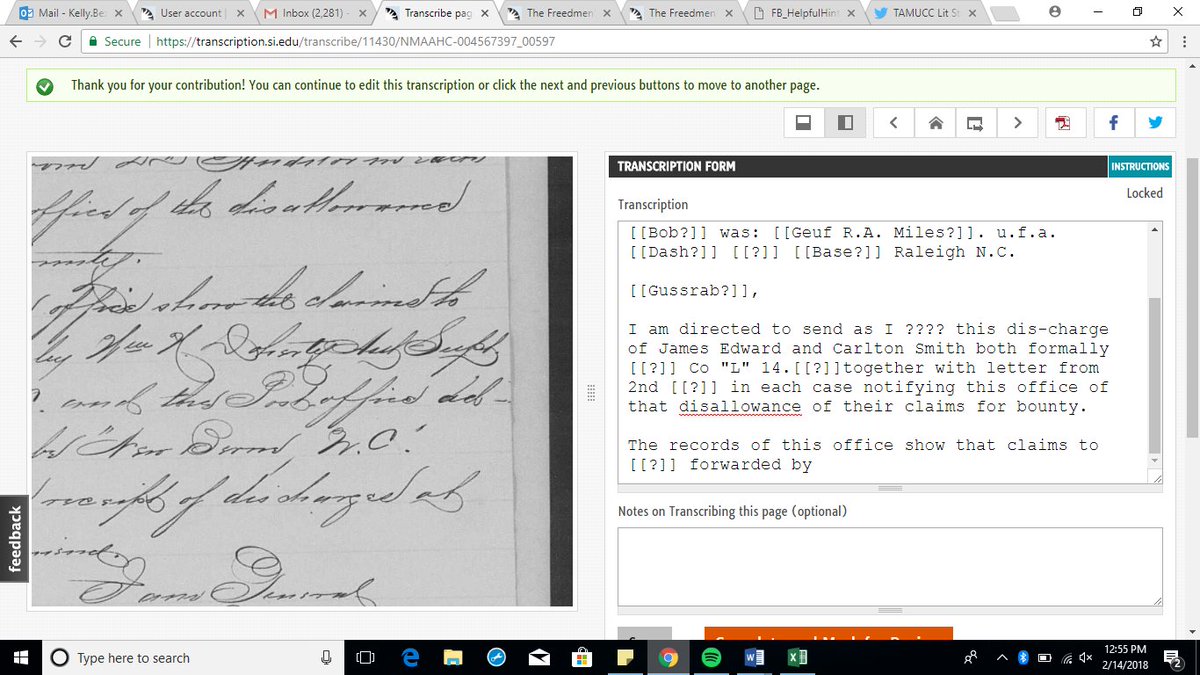 Mail - Kelly.Be
User account
Inbox (2,281) -
Transcribe pag
The Freedmen
The Freedmen
FB_HelpfulHin
TAMUCC Lit St
Secure https://transcription.si.edu/transcribe/11430/NMAAHC-004567397_00597
Thank you for your contribution! You can continue to edit this transcription or click the next and previous buttons to move to another page.
Auditor
office of the disallowance
office show the claims to
by Wm H. Doherty Supt
and the Post office ad-
New Bern, N.C.
receipt of discharges at
General
TRANSCRIPTION FORM
INSTRUCTIONS
Locked
Transcription
[[Bob?]] was: [[Geuf R.A. Miles?]]. u.f.a.
[[Dash?]] [[?]] [[Base?]] Raleigh N.C.
[[Gussrab?]],
I am directed to send as I ???? this dis-charge
of James Edward and Carlton Smith both formally
[[?]] Co "L" 14.[[?]]together with letter from
2nd [[?]] in each case notifying this office of
that disallowance of their claims for bounty.
The records of this office show that claims to
[[?]] forwarded by
Notes on Transcribing this page (optional)
feedback
Type here to search
12:55 PM
2/14/2018
2